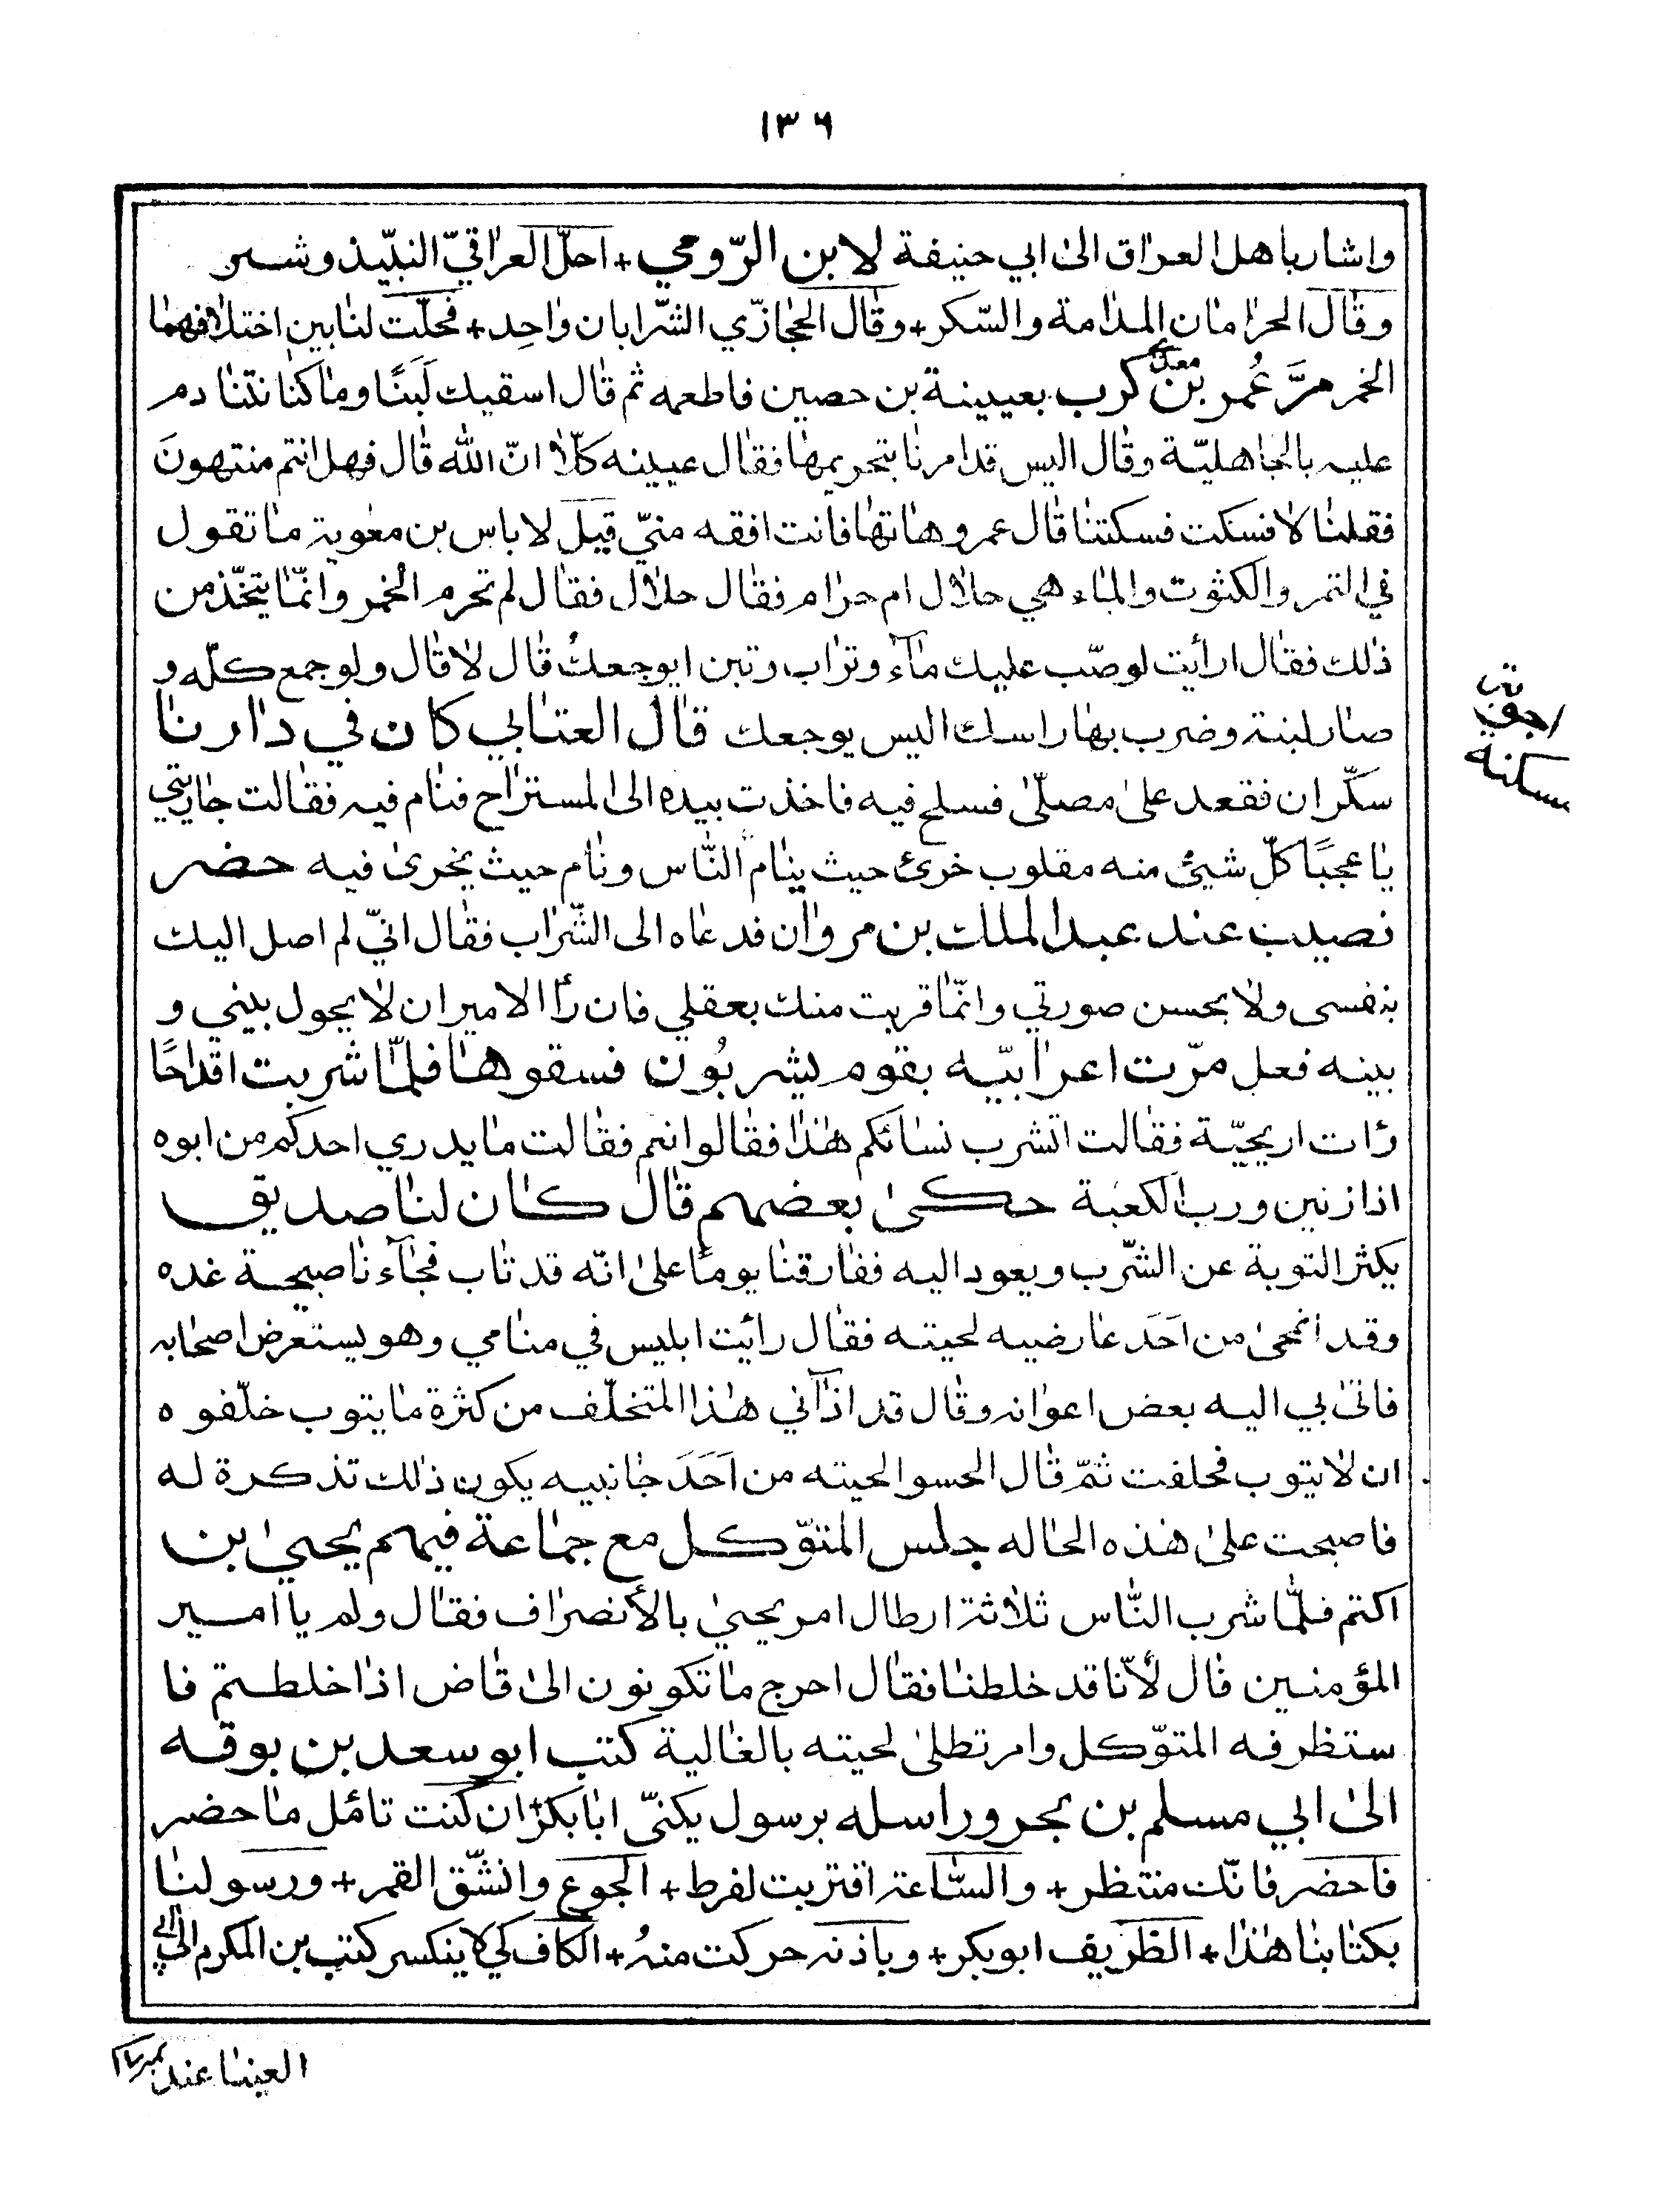 ١٣٦
واشار باهل العراق الى ابي حنيفة لابن الرّومي + احلّ العراقيّ النبيّذ وشر
وقال الحرامان المدامة والسّكر + وقال الحجازّي الشّرابان واحِد + فحلّت لنا بين اختلافهما
الخمر مرَّ عُمر بن معدي كرب بعيينة بن حصين فاطعمه ثم قال اسقيك لَبَنًا وما كنا نتنادم
عليه بالجاهليّة وقال اليس قد امرنا بتحريمها فقال عيينه كلّا انّ الله قال فهل انتم منتهونَ
فقلنا لا فسكت فسكتنا قال عمرو هاتها فانت افقه منيّ قيل لاياس بن معٰوية ما تقول
في التمر والكثوت والماء هي حلال ام حرام فقال حلال فقال لم تحرم الخمر وانّما يتخّذ من
ذلك فقال ارأيت لو صّب عليك مآء وتراب وتبن ايوجعكُ قال لا قال ولو جمع كلّه و
صار لبنة وضرب بها راسك اليس يوجعك قال العتابي كان في دارنا
سكّران فقعد على مصلّى فسلح فيه فاخذت بيده الى المستراح فنام فيه فقالت جاريتي
يا عجبًا كلّ شيئ منه مقلوب خرئ حيث ينام النّاس ونام حيث يخرى فيه حضر
نصيب عند عبد الملك بن مروان فدعاه الى الشّراب فقال انيّ لم اصل اليك
بنفسى ولا بحسن صورتي وانّما قربت منك بعقلي فان رأا الامير ان لا يحول بيني و
بينه فعل مرّت اعرابيّه بقوم يشربُون فسقوها فلمّا شربت اقداحًا
رُات اريحيّة فقالت اتشرب نسائكم هٰذا فقالوا نعم فقالت ما يدري احدكم من ابوه
اذا زنين ورب الكعبة حكى بعضهم قال كان لنا صديق
يكثر التوبة عن الشّرب ويعود اليه ففارقنا يومًا على انّه قد تاب فجآءنا صبيحة غده
وقد انمحى من احَد عارضيه لحيته فقال رائيت ابليس في منامي وهو يستعرض اصحابه
فاتى بي اليه بعض اعوانه وقال قد اذآني هذا المتخلّف من كثرة ما يتوب خلّفوه
ان لا يتوب فحلفت ثمّ قال الحسوا لحيته من اَحَدَ جانبيه يكون ذلك تذكرة له
فاصبحت على هذه الحاله جلس المتوّكل مع جماعة فيهم يحيى بن
اكتم فلمّا شرب النّاس ثلاثة ارطال امر يحيى بالأنصراف فقال ولم يا امير
المؤمنين قال لأنّا قد خلطنا فقال احرج ما تكونون الى قاض اذا خلطتم فا
ستظرفه المتوّكل وامر تطلى لحيته بالغالية كتب ابو سعد بن بوقه
الى ابي مسلم بن بحر وراسله برسول يكنّى ابا بكر + ان كنت تامُل ما حضر
فاحضر فانّك منتظر + والسّاعة اقتربت لفرط + الجوع وانشّق القمر + ورسولنا
بكتابنا هٰذا + الظريف ابو بكر + وباذنه حركت منهُ + الكاف كي لا ينكسر كتب بن المكرم الى ابي
سكنه
العينا عند